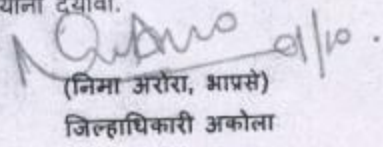 याना दयावा.
01/10.
(निमा अरोरा, भाप्रसे)
जिल्हाधिकारी अकोला